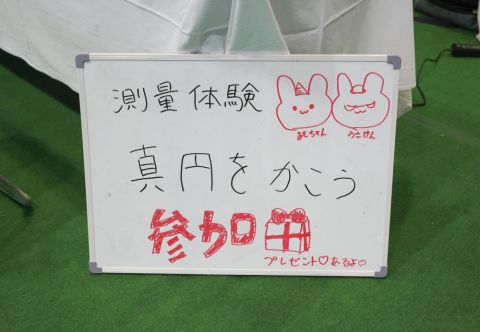 測量体験
まもちゃん うさけん
真円をかこう
参加
プレゼント♡あるよ♡